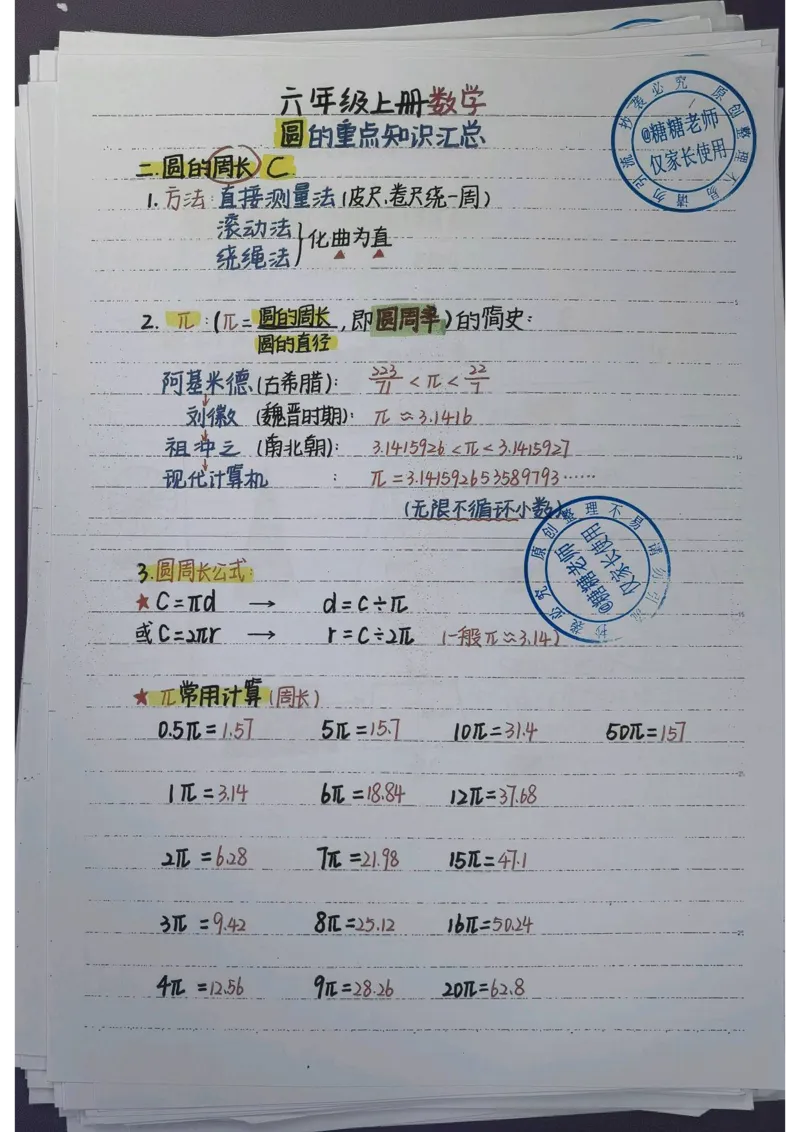 六年级上册数学
圆的重点知识汇总
二.圆的周长 C
1.方法:直接测量法(皮尺、卷尺绕一周)
滚动法
绕绳法 }化曲为直
2. π:(π=圆的周长/圆的直径,即圆周率)的简史:
阿基米德(古希腊): 223/71<π<22/7
刘徽(魏晋时期): π≈3.1416
祖冲之(南北朝): 3.1415926<π<3.1415927
现代计算机 : π=3.141592653589793……
(无限不循环小数)
3.圆周长公式:
★C=πd → d=C÷π
或C=2πr → r=C÷2π (一般π≈3.14)
★π常用计算(周长)
0.5π=1.57 5π=15.7 10π=31.4 50π=157
1π=3.14 6π=18.84 12π=37.68
2π=6.28 7π=21.98 15π=47.1
3π=9.42 8π=25.12 16π=50.24
4π=12.56 9π=28.26 20π=62.8
原创整理不易 请勿引流 抄袭必究
@糖糖老师
仅家长使用
原创整理不易 请勿引流 抄袭必究
@糖糖老师
仅家长使用